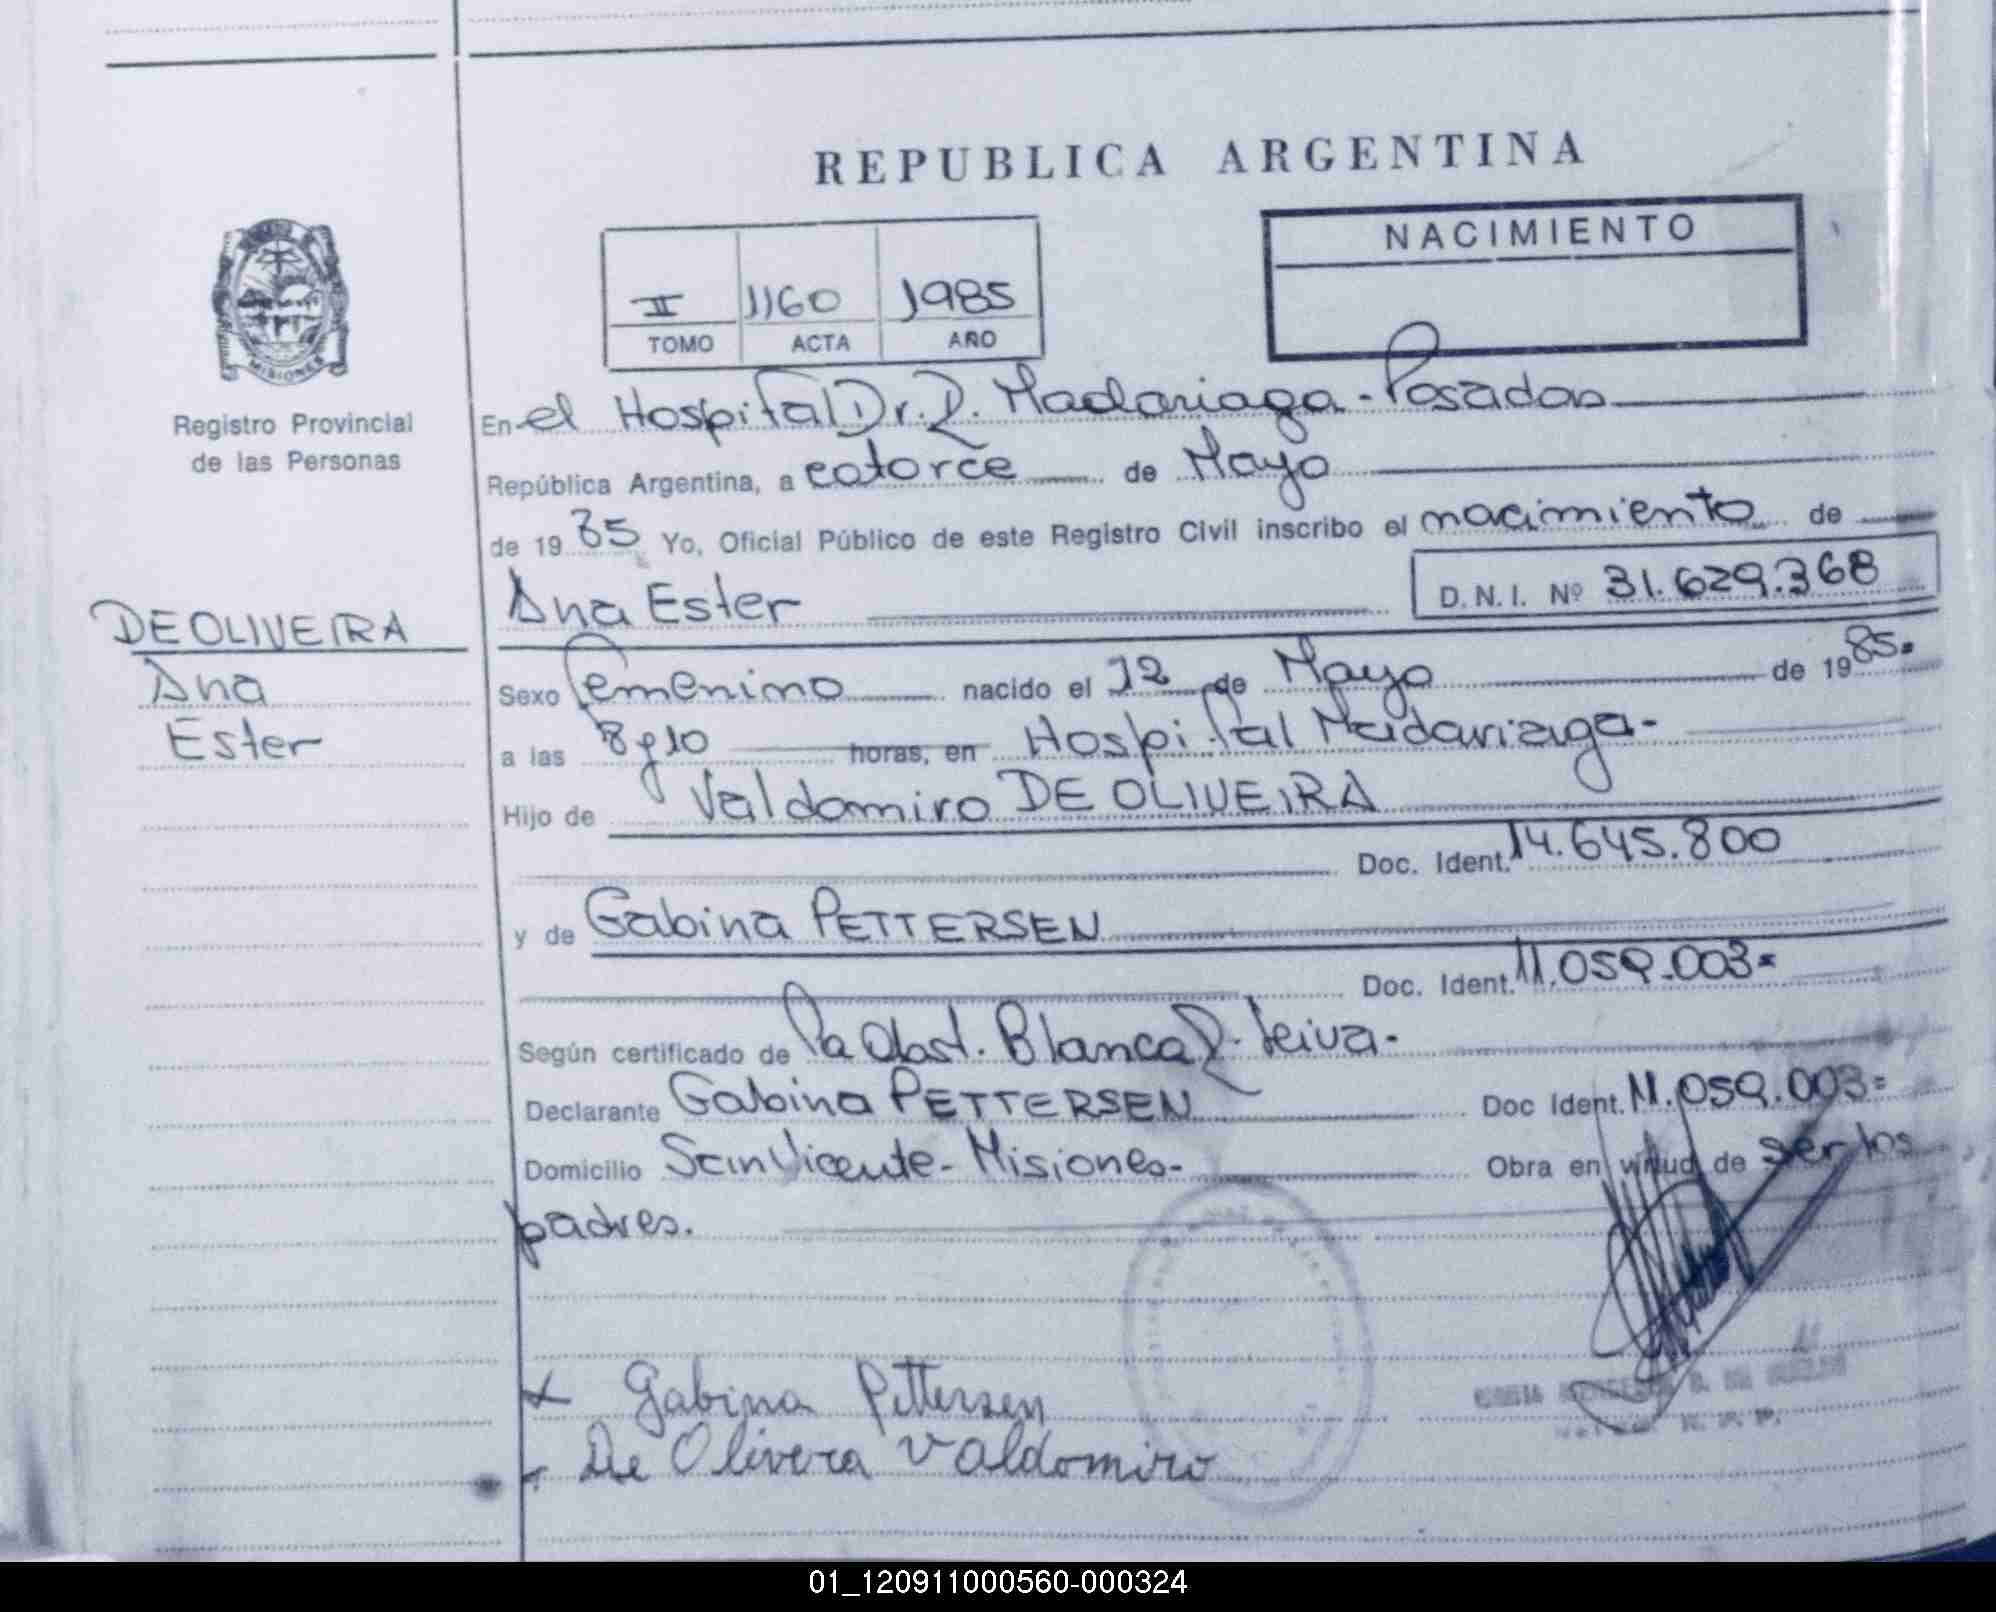 REPUBLICA ARGENTINA
NACIMIENTO
II 1160 1985
TOMO ACTA AÑO
MISIONES
Registro Provincial
de las Personas
En el Hospital Dr. R. Madariaga - Posadas
República Argentina, a catorce de Mayo
de 19 85 Yo, Oficial Público de este Registro Civil inscribo el nacimiento de
Ana Ester D.N.I. Nº 31.629.368
DE OLIVEIRA
Ana
Ester
Sexo Femenino nacido el 12 de Mayo de 1985=
a las 8 y 10 horas, en Hospital Madariaga-
Hijo de Valdomiro DE OLIVEIRA
Doc. Ident. 14.645.800
y de Gabina PETTERSEN
Doc. Ident. 11.059.003=
Según certificado de la Obst. Blanca R. Leiva-
Declarante Gabina PETTERSEN Doc Ident. 11.059.003=
Domicilio San Vicente - Misiones- Obra en virtud de ser los
padres.
Gabina Pettersen
De Olivera Valdomiro
01_120911000560-000324